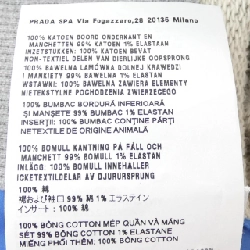 PRADA SPA Via Fogazzaro,28 20135 Milano
100% KATOEN BOORD ONDERKANT EN
MANCHETTEN 99% KATOEN 1% ELASTAAN
INZETSTUKKEN: 100% KATOEN BEVAT
NON-TEXTIEL DELEN VAN DIERLIJKE OORSPRONG
100% BAWEŁNA LAMÓWKA DOLNEJ KRAWĘDZI
I MANKIETY 99% BAWEŁNA 1% ELASTAN
WSTAWKI: 100% BAWEŁNA ZAWIERA ELEMENTY
NIETEKSTYLNE POCHODZENIA ZWIERZĘCEGO
100% BUMBAC BORDURĂ INFERICARĂ
ŞI MANŞETE 99% BUMBAC 1% ELASTAN
INSERŢII: 100% BUMBAC CONŢINE PĂRŢI
NETEXTILE DE ORIGINE ANIMALĂ
100% BOMULL KANTNING PÅ FÅLL OCH
MANCHETT 99% BOMULL 1% ELASTAN
INLÄGG: 100% BOMULL INNEHÅLLER
ICKETEXTILDELAR AV DJURURSPRUNG
100% 綿
裾および袖口 99% 綿 1% エラステイン
インサート: 100% 綿
100% BÔNG COTTON MÉP QUẦN VÀ MĂNG
SÉT 99% BÔNG COTTON 1% ELASTANE
MIẾNG PHỐI THÊM: 100% BÔNG COTTON